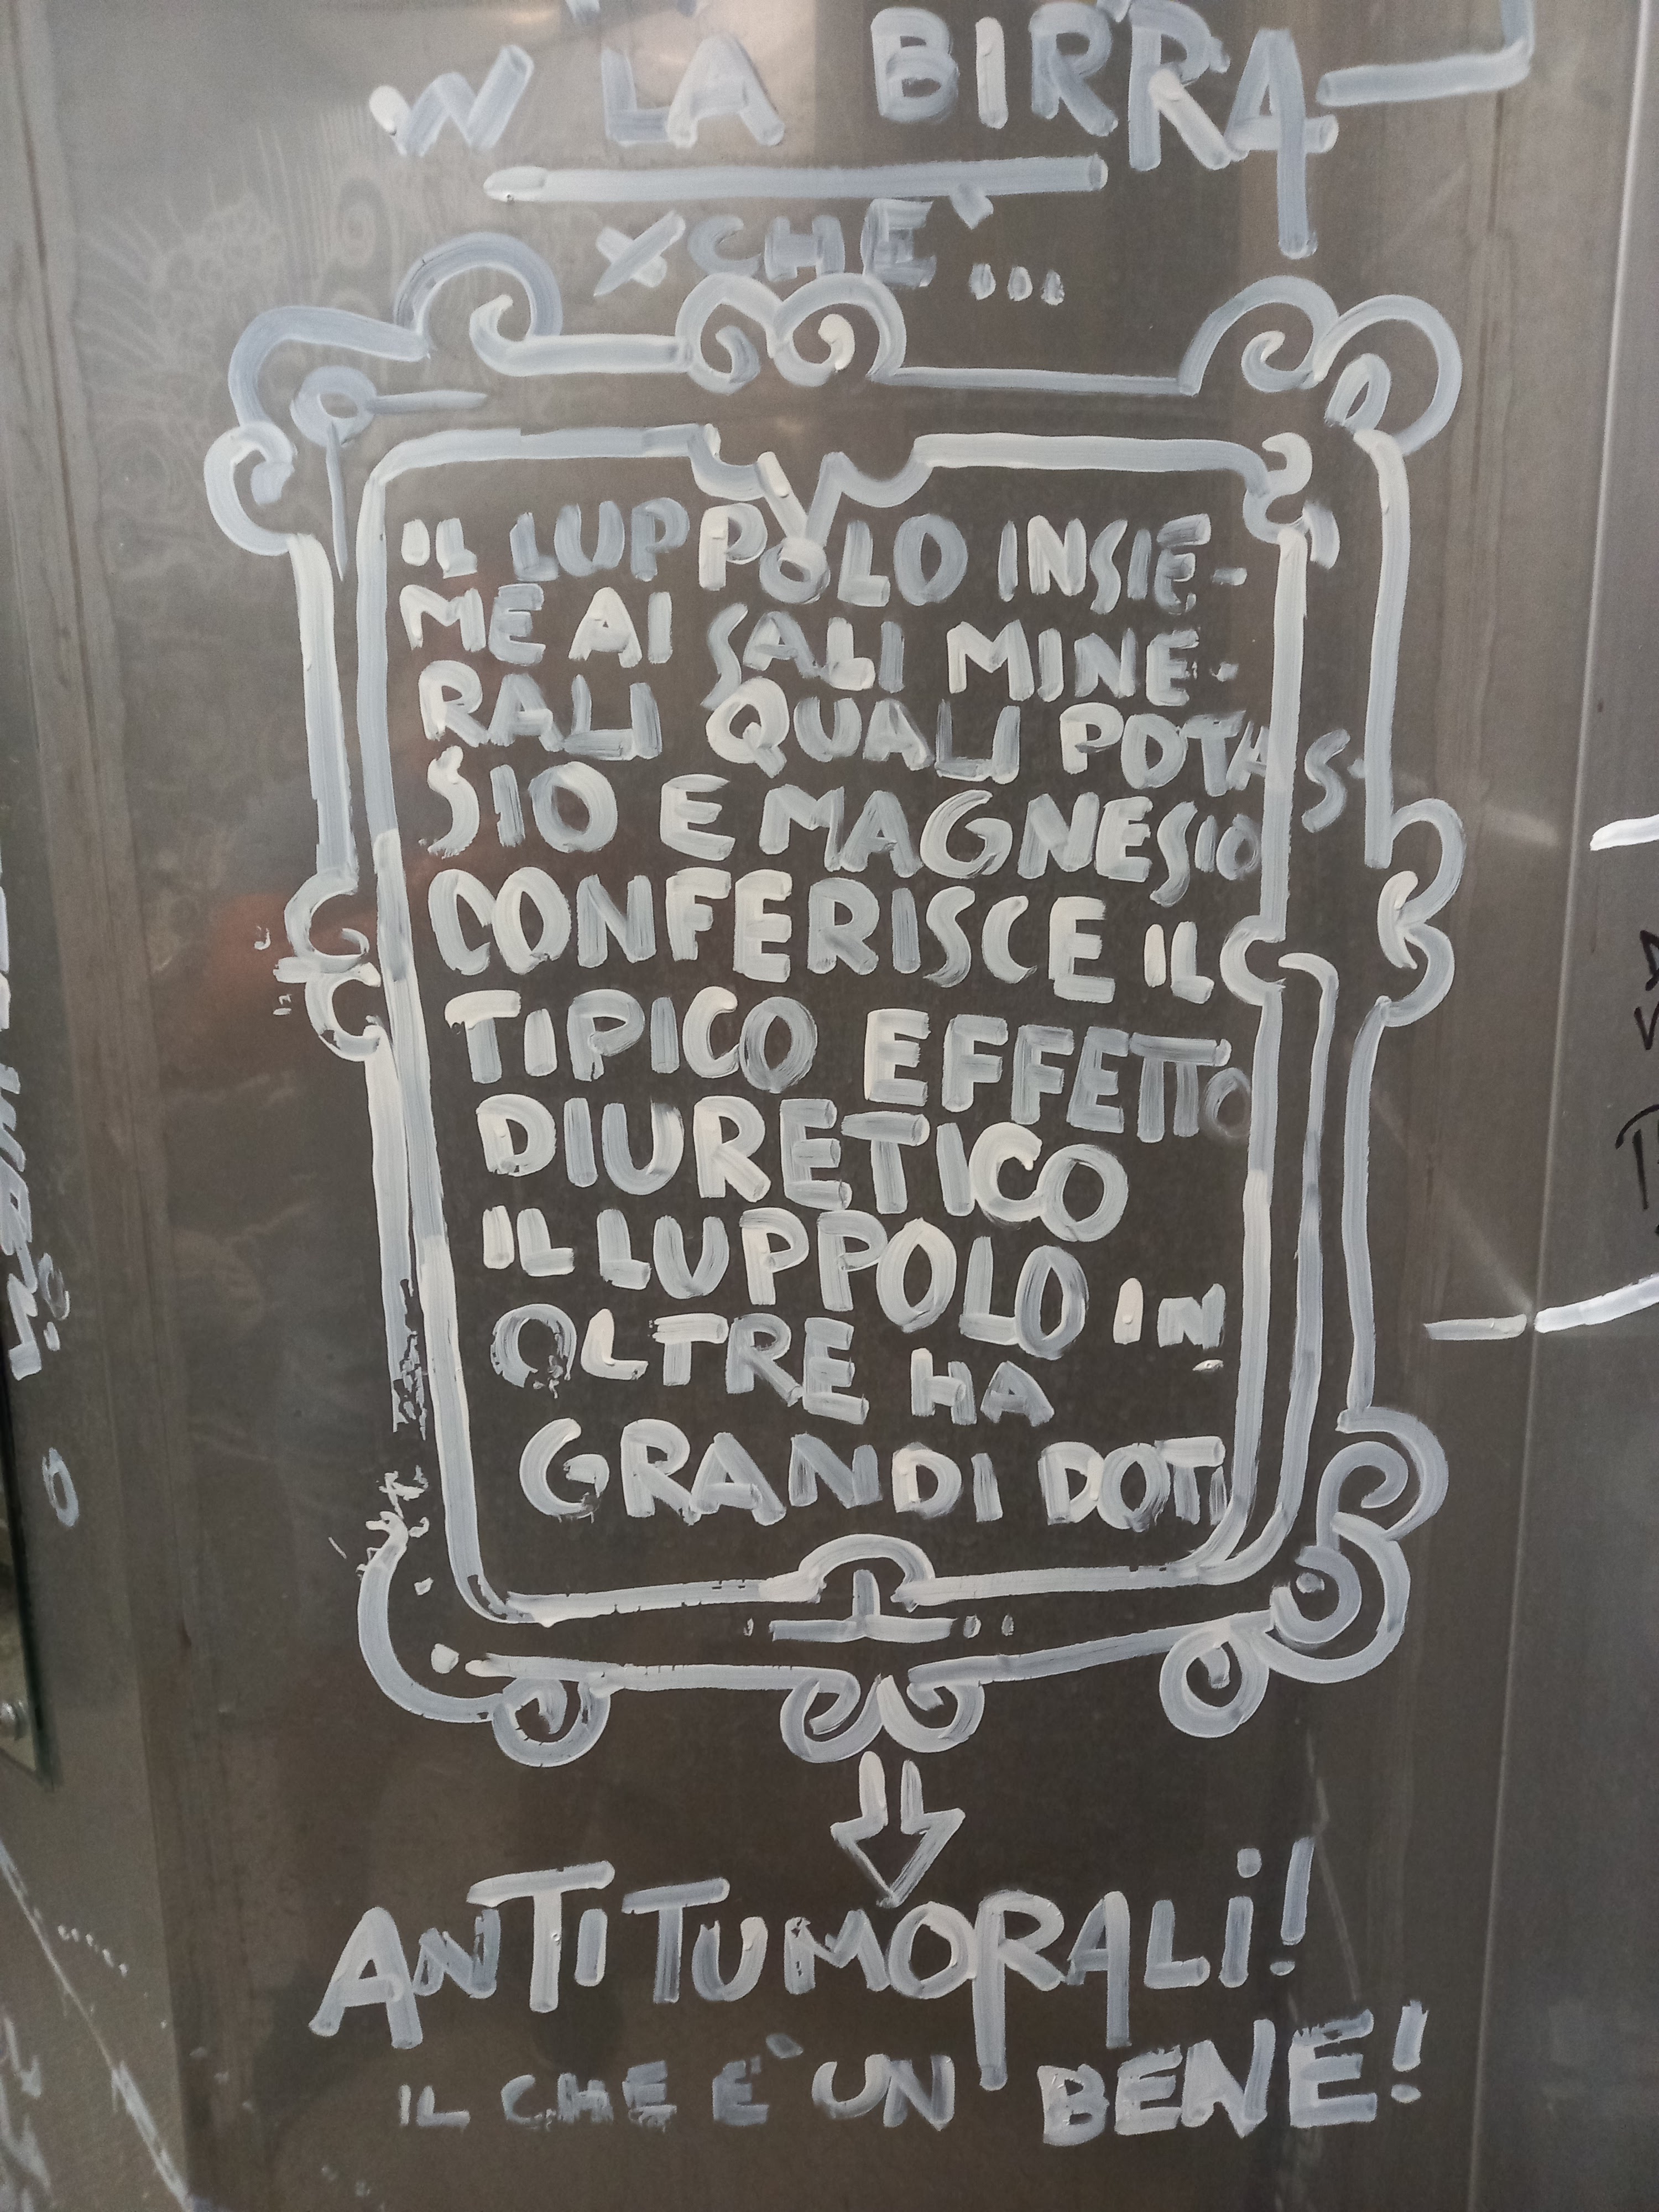 W LA BIRRA
XCHE`...
IL LUPPOLO INSIE-
ME AI SALI MINE-
RALI QUALI POTAS-
SIO E MAGNESIO
CONFERISCE IL
TIPICO EFFETTO
DIURETICO
IL LUPPOLO IN
OLTRE HA
GRANDI DOTI
ANTITUMORALI!
IL CHE E` UN BENE!